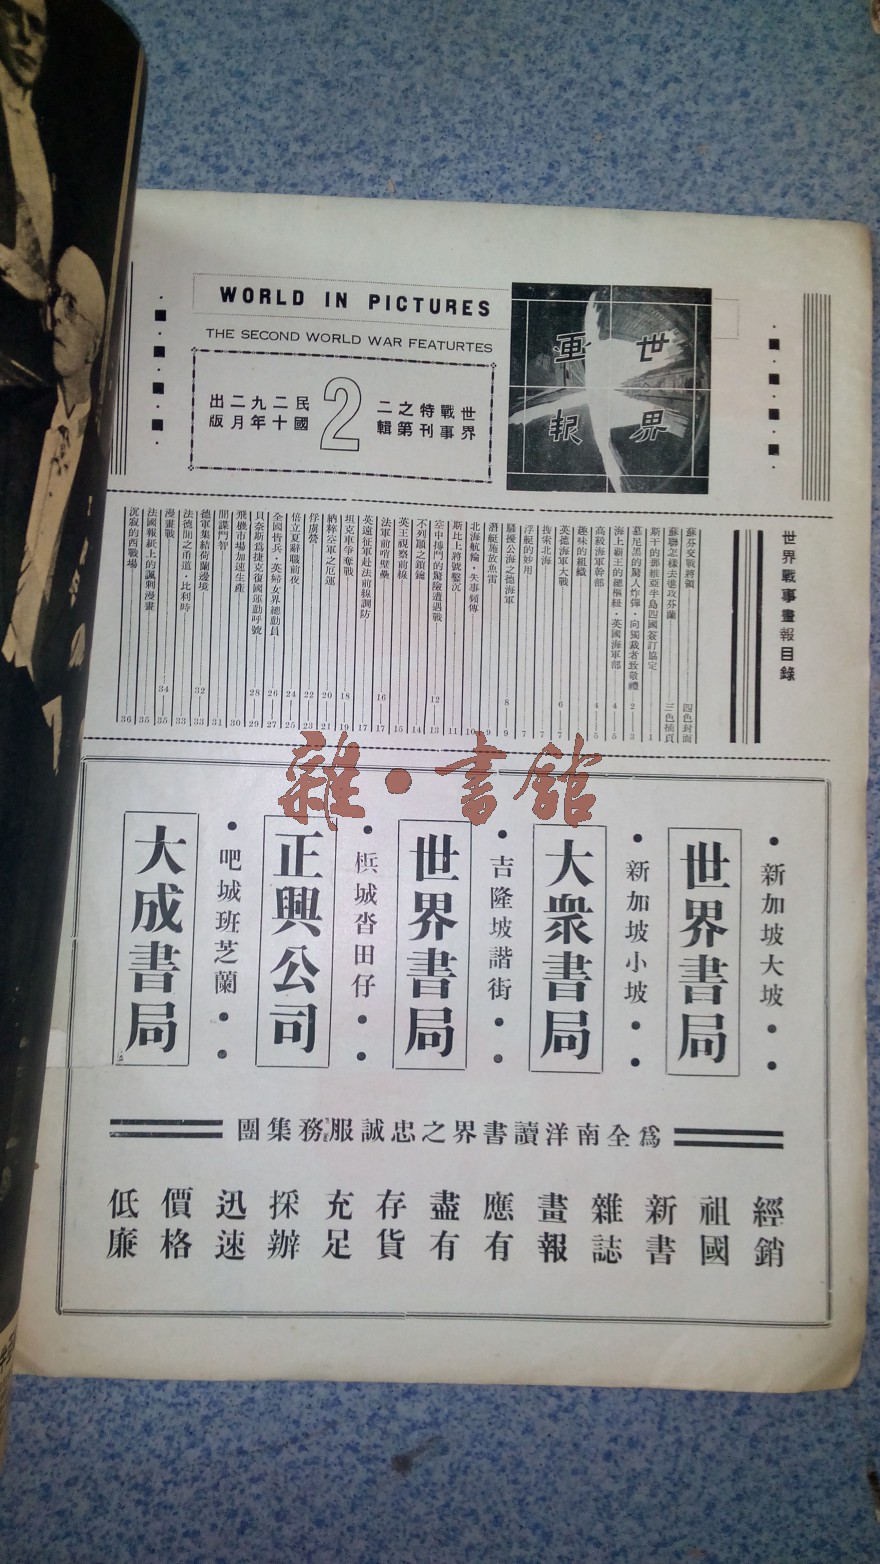 世界畫報
WORLD IN PICTURES
THE SECOND WORLD WAR FEATURTES
世界戰事特刊之第二輯
2
民國二十九年二月出版
世界戰事畫報目錄
蘇芬交戰將領 四色封面
蘇聯怎樣去進攻芬蘭 三色插頁
斯干的那維亞半島四國簽訂協定 1
慕尼黑的驚人炸彈·向獨裁者致敬禮 2—3
海上霸王的總樞紐·英國海軍部 4—5
高級海軍幹部 4—5
趣味的組織
英德海軍大戰 6—7
搜索北海 7
浮艇的妙用 7
騷擾公海之德海軍 8—9
潛艇施放魚雷 9
北海航輪·失事頻傳 10
斯比上將號擊沉 11
空中搏鬥的驚險遭遇戰 12—13
不列顛之鎖鑰 14
英王視察前線 15
法軍前哨壁壘 16—17
英遠征軍赴法前線調防 17
坦克車爭奪戰 18—19
納粹空軍之厄運 20—21
俘虜營 22—23
倍立夏辭職前夜 24—25
全國皆兵·英婦女界總動員 26—27
貝奈斯爲捷克復國運動呼號 28—29
飛機市場加速生產 30
間諜鬥智 31
德軍集結荷蘭邊境 32—33
法德間之甬道·比利時 33
漫畫戰 34—35
法國報紙上的諷刺漫畫 35
沉寂的西戰場 36
·新加坡大坡··
世界書局
·新加坡小坡··
大衆書局
·吉隆坡諧街··
世界書局
·梹城沓田仔··
正興公司
·吧城班芝蘭··
大成書局
團集務服誠忠之界書讀洋南全爲
經銷
祖國
新書
雜誌
畫報
應有
盡有
存貨
充足
採辦
迅速
價格
低廉
雜·書舘